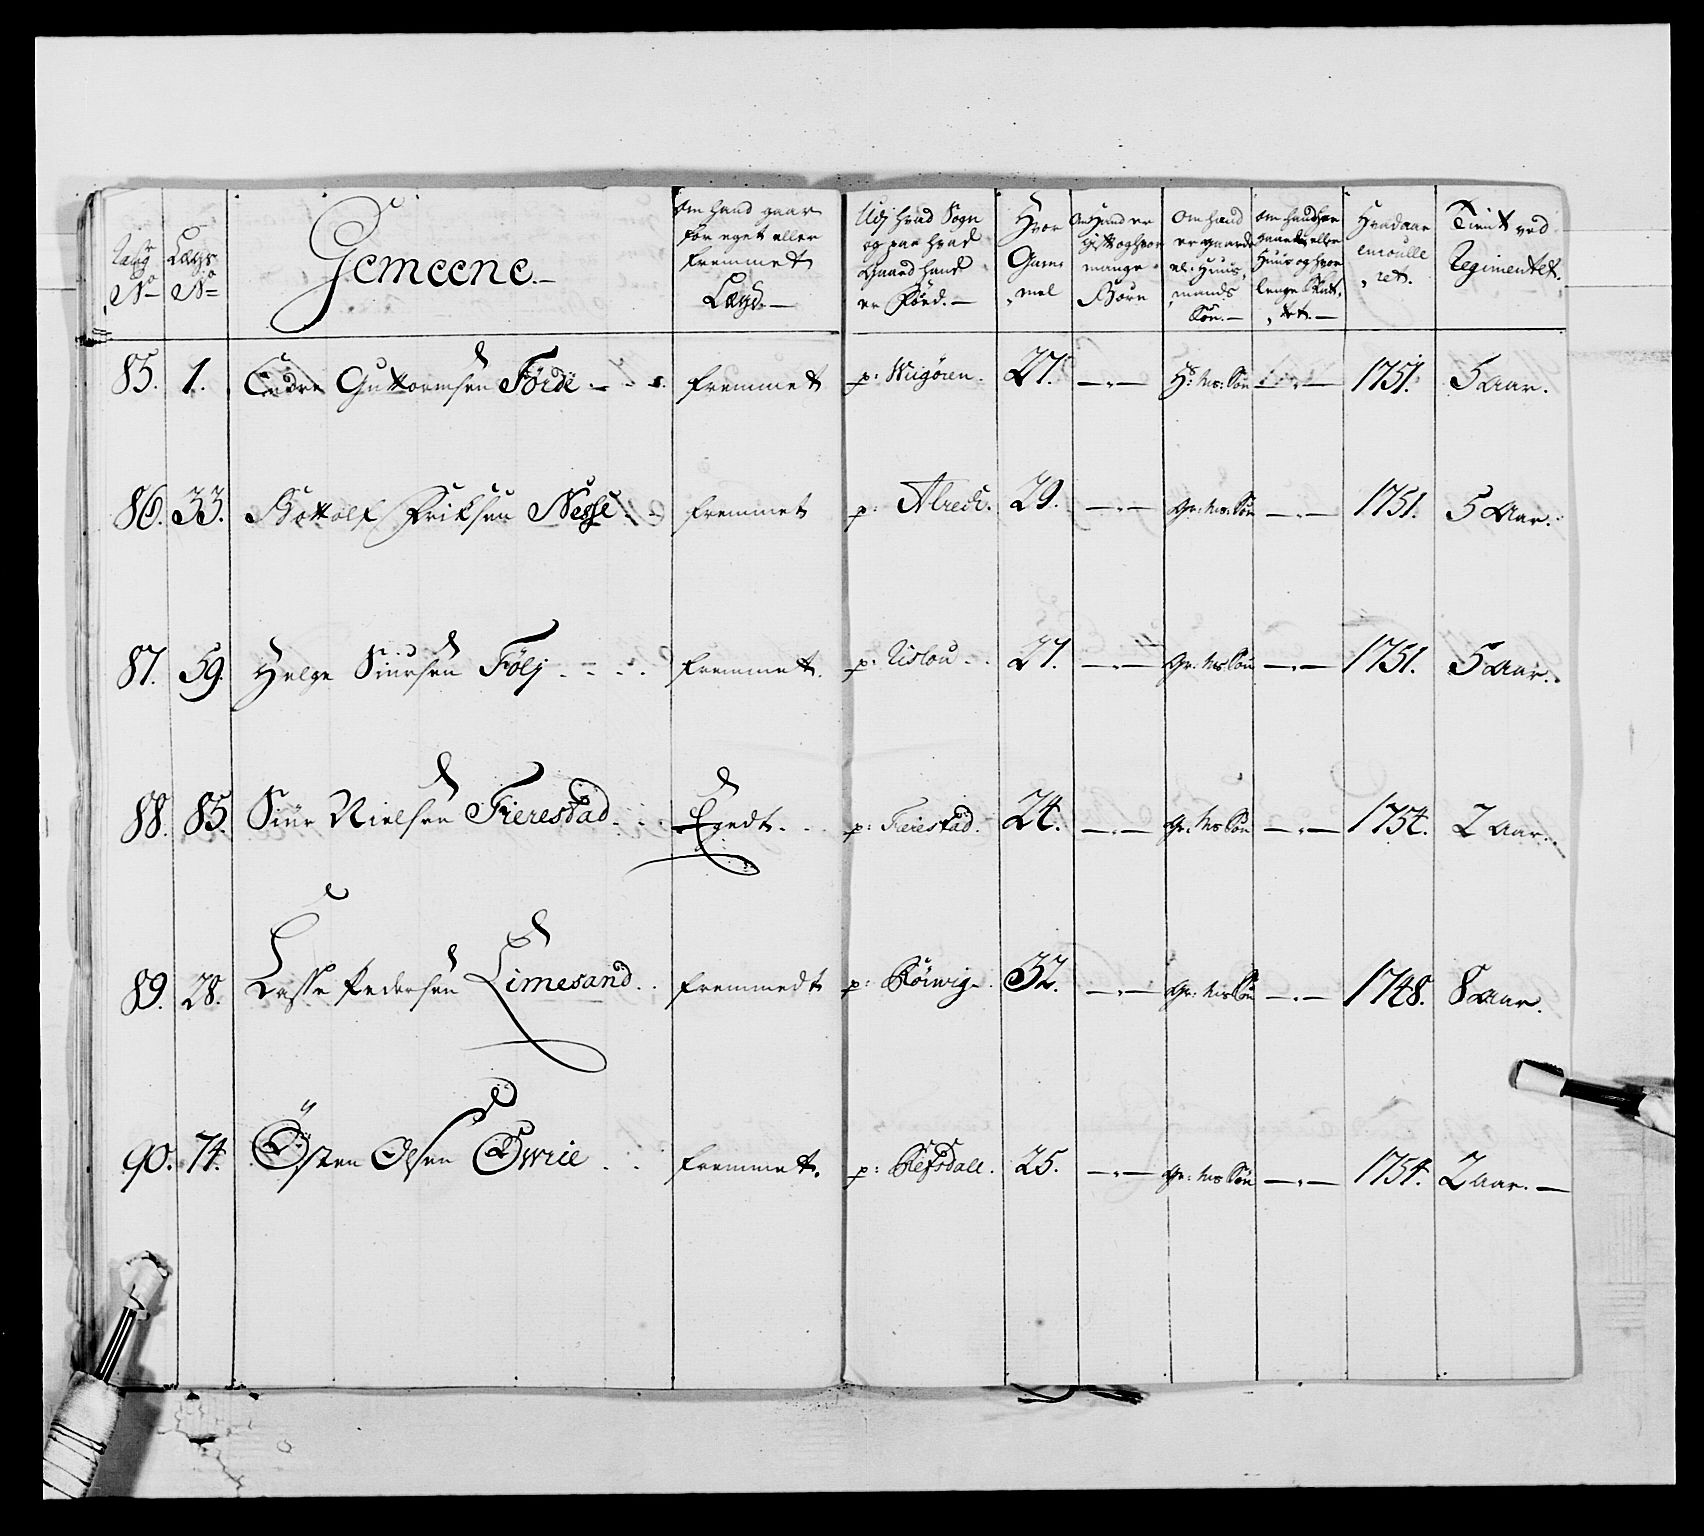 Rang No
Lægs No
Gemeene.—
om hand gaar for eget eller fremmet Lægd.—
Udj hvad Sogn og paa hvad Gaard hand er Föed.—
Hvor Gam„mel
om Hand er gift og hvor mange Börn
om hand er gaards el: Huus„mands Sön.—
om hand har gaard eller Huus og hvor længe
Hvad aar enroulle„ret.
Tient ved Regimentet.
85. 1. Endre Guttormsen Förde — fremmet p: Weigören. 27. —.— Hs: Ms: Sön —.— 1751. 5 aar.
86. 33. Bottolf Eriksen Nesse — fremmet p: Alrech. 29. —.— Gr: Ms: Sön —.— 1751. 5 Aar.
87. 59. Helge Siursen Följ . . . . fremmet. p: Nislou . . 27. —.— Gr: Ms Sön —.— 1751. 5 Aar.
88. 85. Siur Nielsen Fierestad . . Egedt. . . p: Fierestad. 24. —.— Gr: Ms Sön —.— 1754. 2 Aar.
89. 28. Lasse Pedersen Limesand . . fremmedt p: Röiwig. 32. —.— Gr: Ms Sön —.— 1748. 8 Aar.
90. 74. Östen Olsen Öwrie . . . fremmet. p: Refsdall. 25. —.— Gr: Ms Sön —.— 1754. 2 aar. —